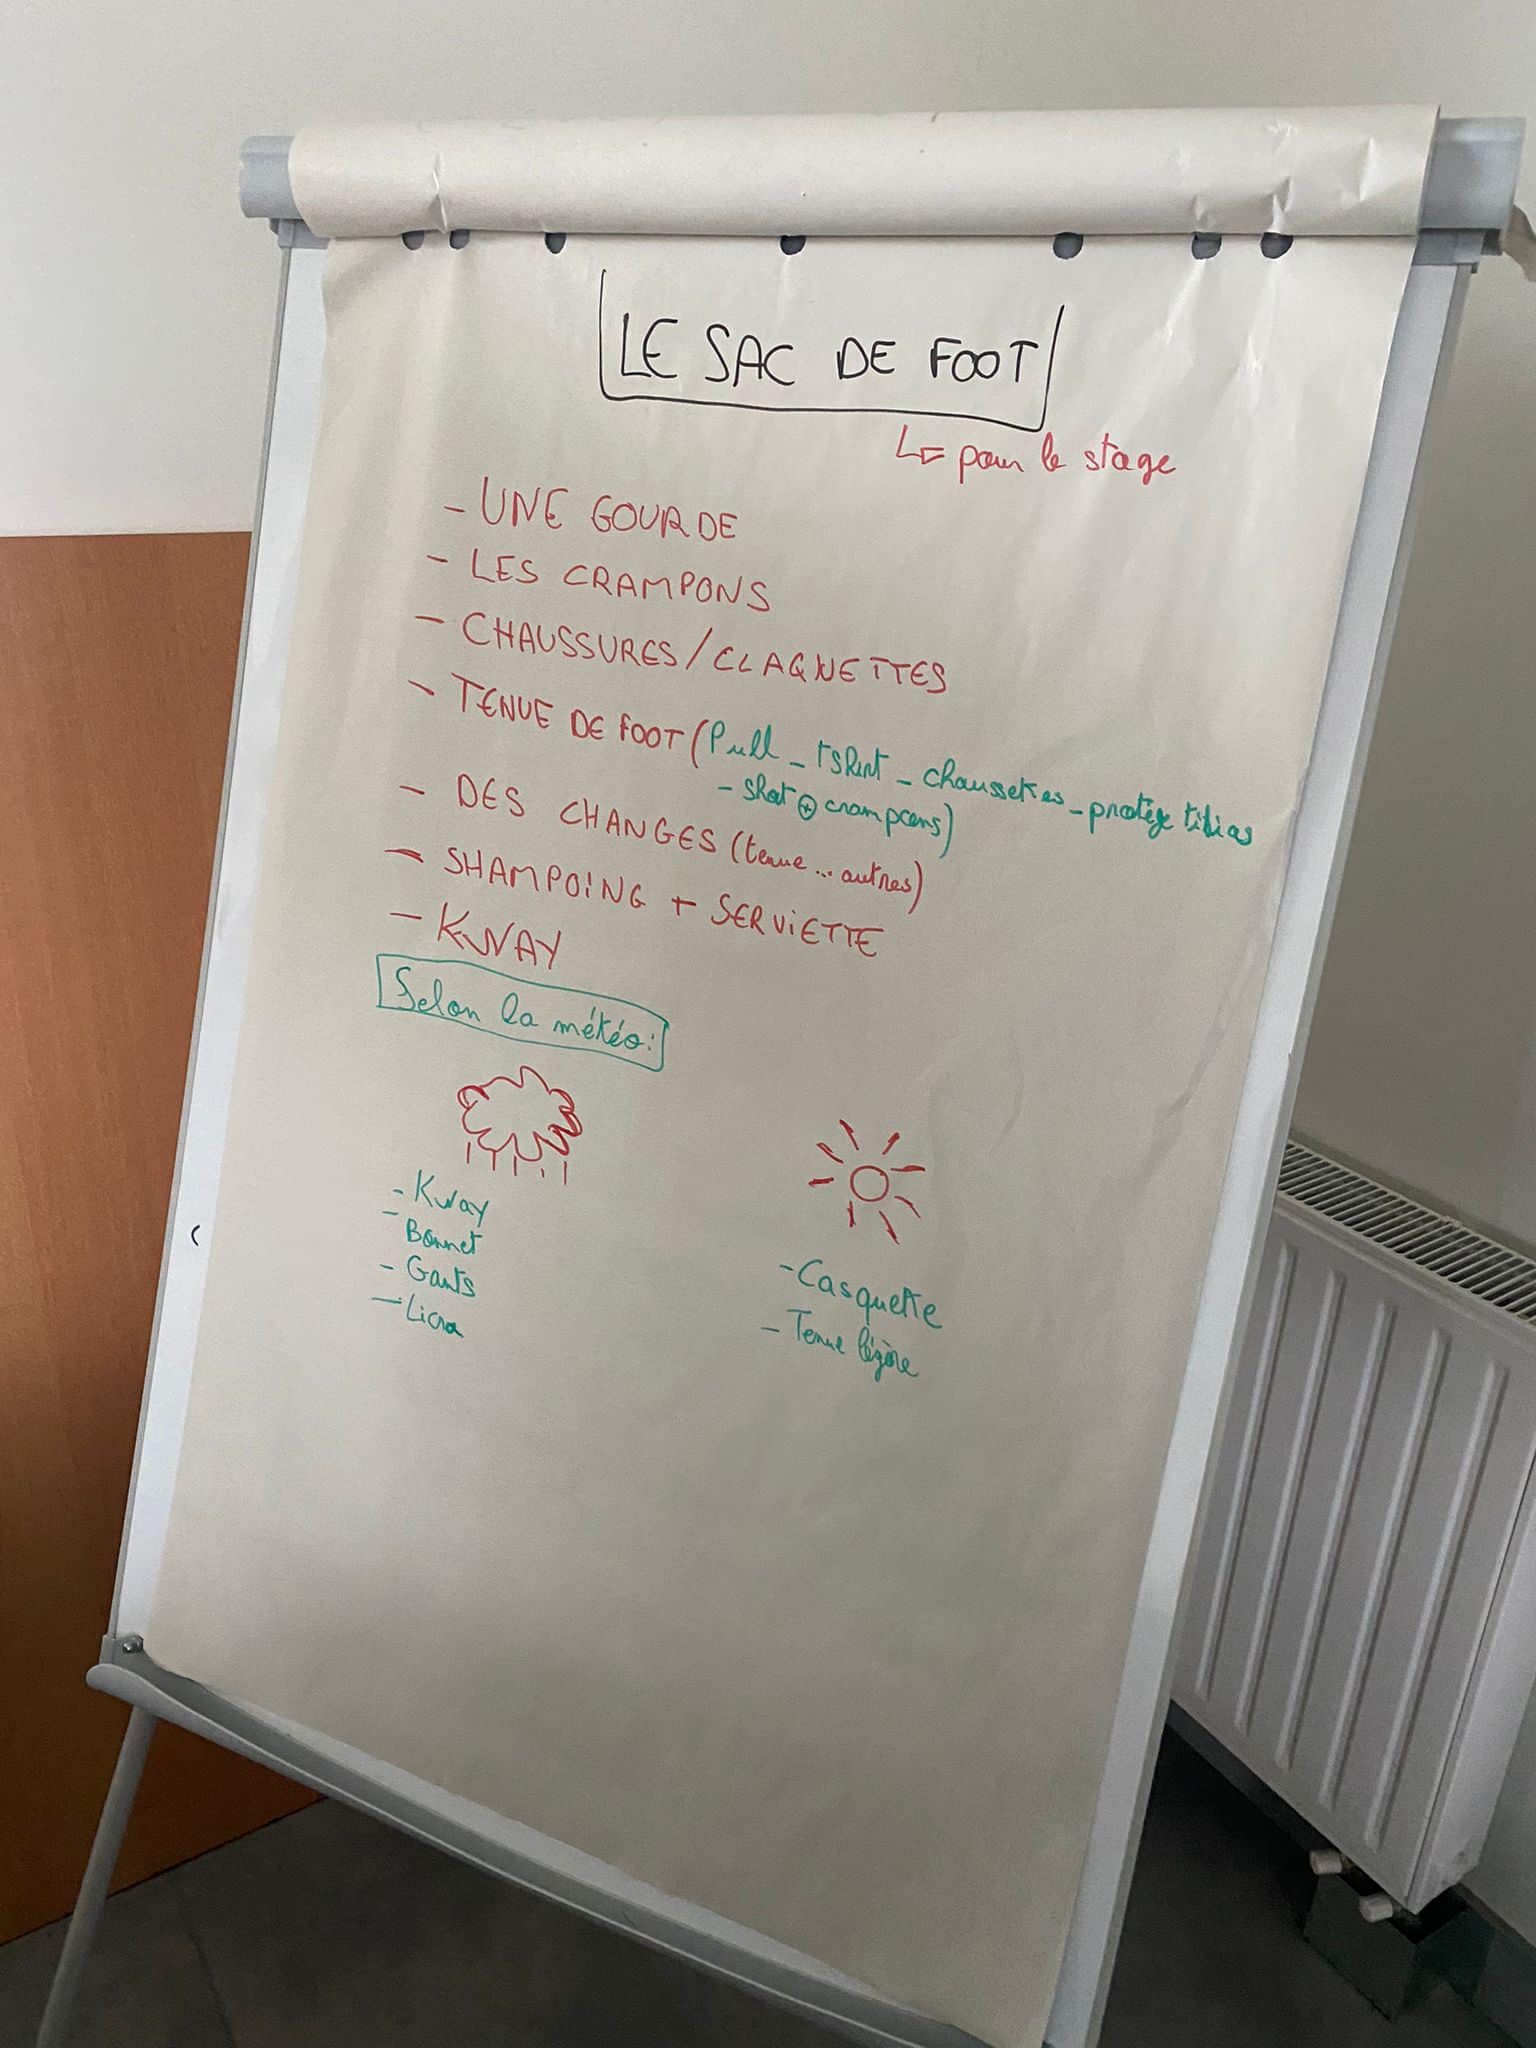 LE SAC DE FOOT
pour le stage
- UNE GOURDE
- LES CRAMPONS
- CHAUSSURES/CLAQUETTES
- TENUE DE FOOT (Pull - tshirt - chaussettes - protège tibias
- short + crampons)
- DES CHANGES (tenue ... autres)
- SHAMPOING + SERVIETTE
- KWAY
Selon la météo:
- Kway
- Bonnet
- Gants
- Licra
- Casquette
- Tenue légère